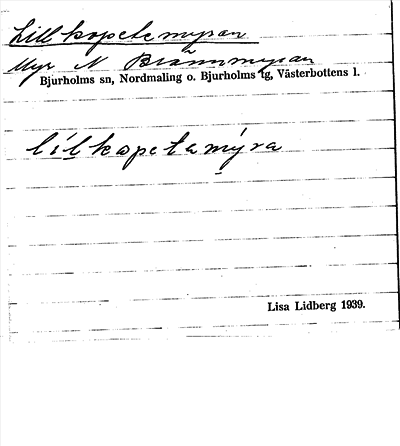 Lillkopetemyran
Myr N Brännmyran
Bjurholms sn, Nordmaling o. Bjurholms tg, Västerbottens l.
lílkapetamýra
Lisa Lidberg 1939.